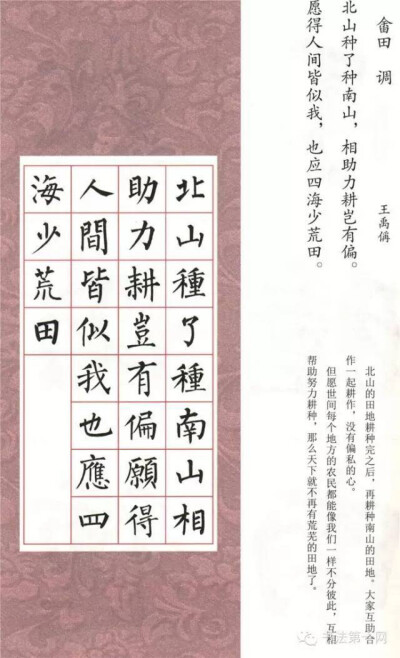 畲田 调
王禹偁
北山种了种南山，相助力耕岂有偏。
愿得人间皆似我，也应四海少荒田。
北山的田地耕种完之后，再耕种南山的田地。大家互助合
作一起耕作，没有偏私的心。
但愿世间每个地方的农民都能像我们一样不分彼此，互相
帮助努力耕种，那么天下就不再有荒芜的田地了。
北山種了種南山相
助力耕豈有偏願得
人間皆似我也應四
海少荒田
书法第一网